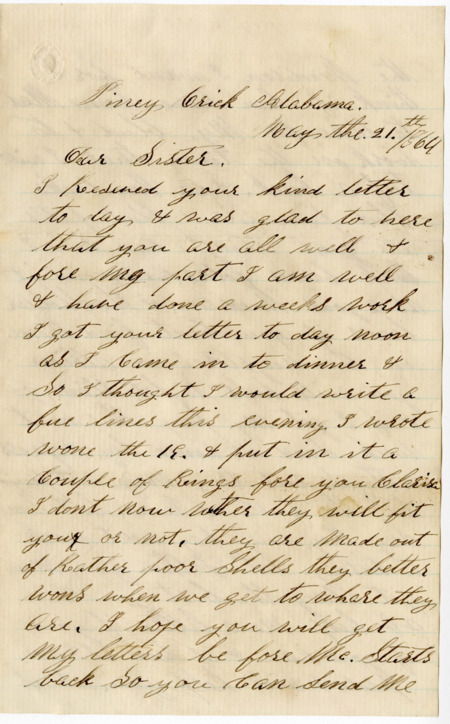 Piney Crick Alabama.
May the. 21.th 1864
Dear Sister.
I Received your kind letter
to day & was glad to here
that you are all well &
fore my part I am well
& have done a weeks work
I got your letter to day noon
as I came in to dinner &
So I thought I would write a
fue lines this evening I wrote
wone the 19. & put in it a
Couple of Rings fore you Clarisa
I dont now wther they will fit
you or not, they are made out
of Rather poor Shells they better
wons when we get to whare they
are. I hope you will get
my letters be fore Mc. Starts
back So you Can Send Me